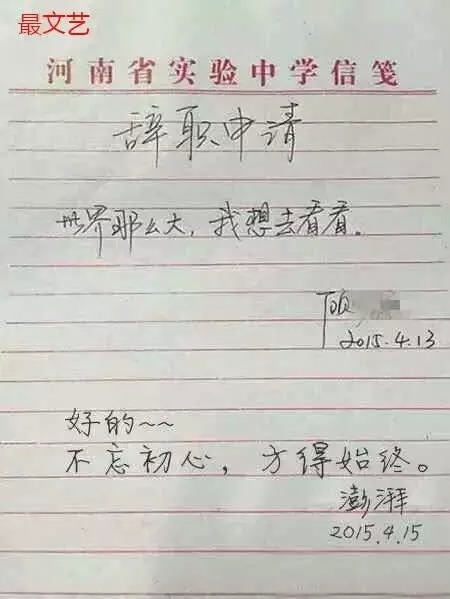 最文艺
河南省实验中学信笺
辞职申请
世界那么大,我想去看看。
顾
2015.4.13
好的~~
不忘初心,方得始终。
澎湃
2015.4.15